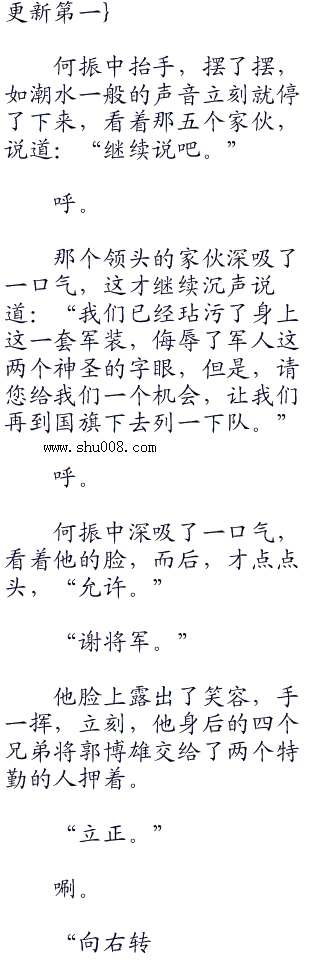 更新第一}
何振中抬手，摆了摆，
如潮水一般的声音立刻就停
了下来，看着那五个家伙，
说道：“继续说吧。”
呼。
那个领头的家伙深吸了
一口气，这才继续沉声说
道：“我们已经玷污了身上
这一套军装，侮辱了军人这
两个神圣的字眼，但是，请
您给我们一个机会，让我们
再到国旗下去列一下队。”
www.shu008.com
呼。
何振中深吸了一口气，
看着他的脸，而后，才点点
头，“允许。”
“谢将军。”
他脸上露出了笑容，手
一挥，立刻，他身后的四个
兄弟将郭博雄交给了两个特
勤的人押着。
“立正。”
唰。
“向右转